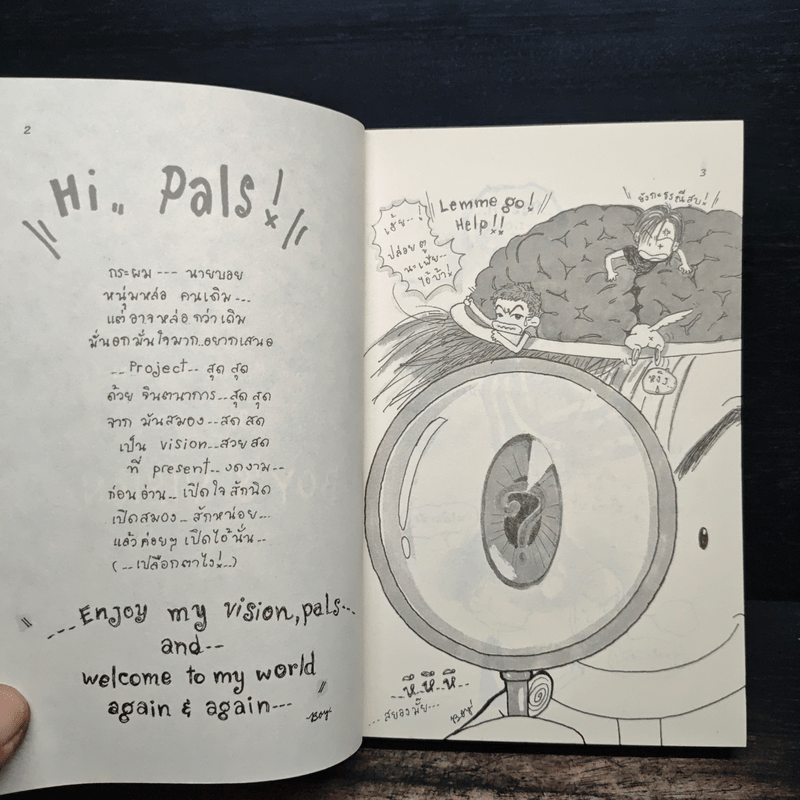 2
Hi.. Pals!
กระผม --- นายบอย
หนุ่มหล่อ คนเดิม---
แต่ อาจหล่อ กว่าเดิม
มั่นอกมั่นใจมาก..อยากเสนอ
-- Project -- สุด สุด
ด้วย จินตนาการ -- สุด สุด
จาก มันสมอง -- สด สด
เป็น vision -- สวยสด
ที่ present -- งดงาม --
ก่อนอ่าน -- เปิดใจ สักนิด
เปิดสมอง -- สักหน่อย --
แล้วค่อยๆ เปิดไอ้นั่น --
(-- เปลือกตาไง! --)
--- Enjoy my vision, pals ---
and --
welcome to my world
again & again ---
BOY
3
เฮ้ย--!
ปล่อย ตู
นะเฟ้ย--
ไอ้บ้า!
Lemme go!
Help!!
ธรณีสูบ!
หนิง
?
-- หึ หึ หึ --
--- สยองมั้ย ---
BOY